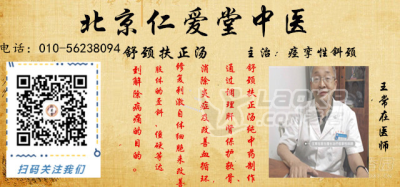 北京仁爱堂中医
电话：010-56238094
舒颈扶正汤
主治：痉挛性斜颈
舒颈扶正汤纯中药制作
通过调理肝肾保护软骨
消除炎症及改善血循环
修复刺激自体细胞来改善
肢体的歪斜、僵硬等达
到解除病痛的目的。
王常在医师
扫码关注我们